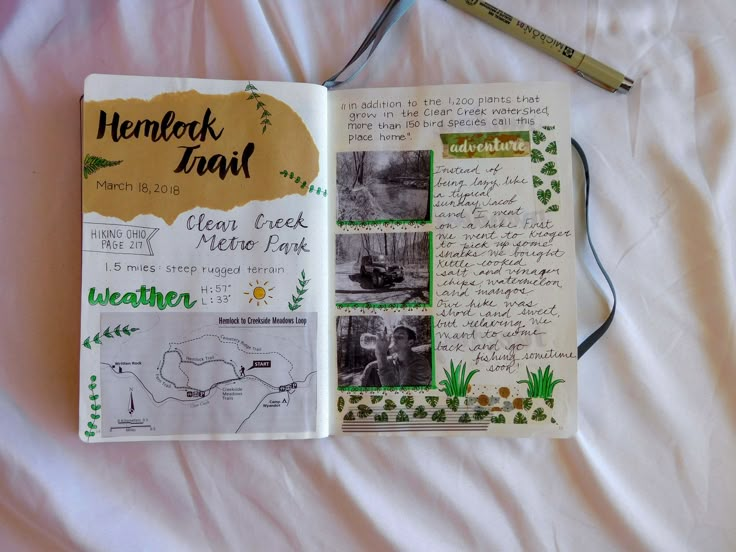 Hemlock
Trail
March 18, 2018
HIKING OHIO
PAGE 217
Clear Creek
Metro Park
1.5 miles: steep rugged terrain
weather
H: 57°
L: 33°
Hemlock to Creekside Meadows Loop
Hemlock Trail
START
Creekside
Meadows
Trails
Camp
Wyandot
"in addition to the 1,200 plants that
grow in the Clear Creek watershed,
more than 150 bird species call this
place home".
adventure
Instead of
being lazy like
a typical
sunday Jacob
and I went
on a hike. First
we went to Kroger
to pick up some
snacks. We bought
Kettle cooked
salt and vinegar
chips, watermelon,
and mangos
Our hike was
short and sweet,
but relaxing. We
want to come
back and go
fishing sometime
soon!
MICRON